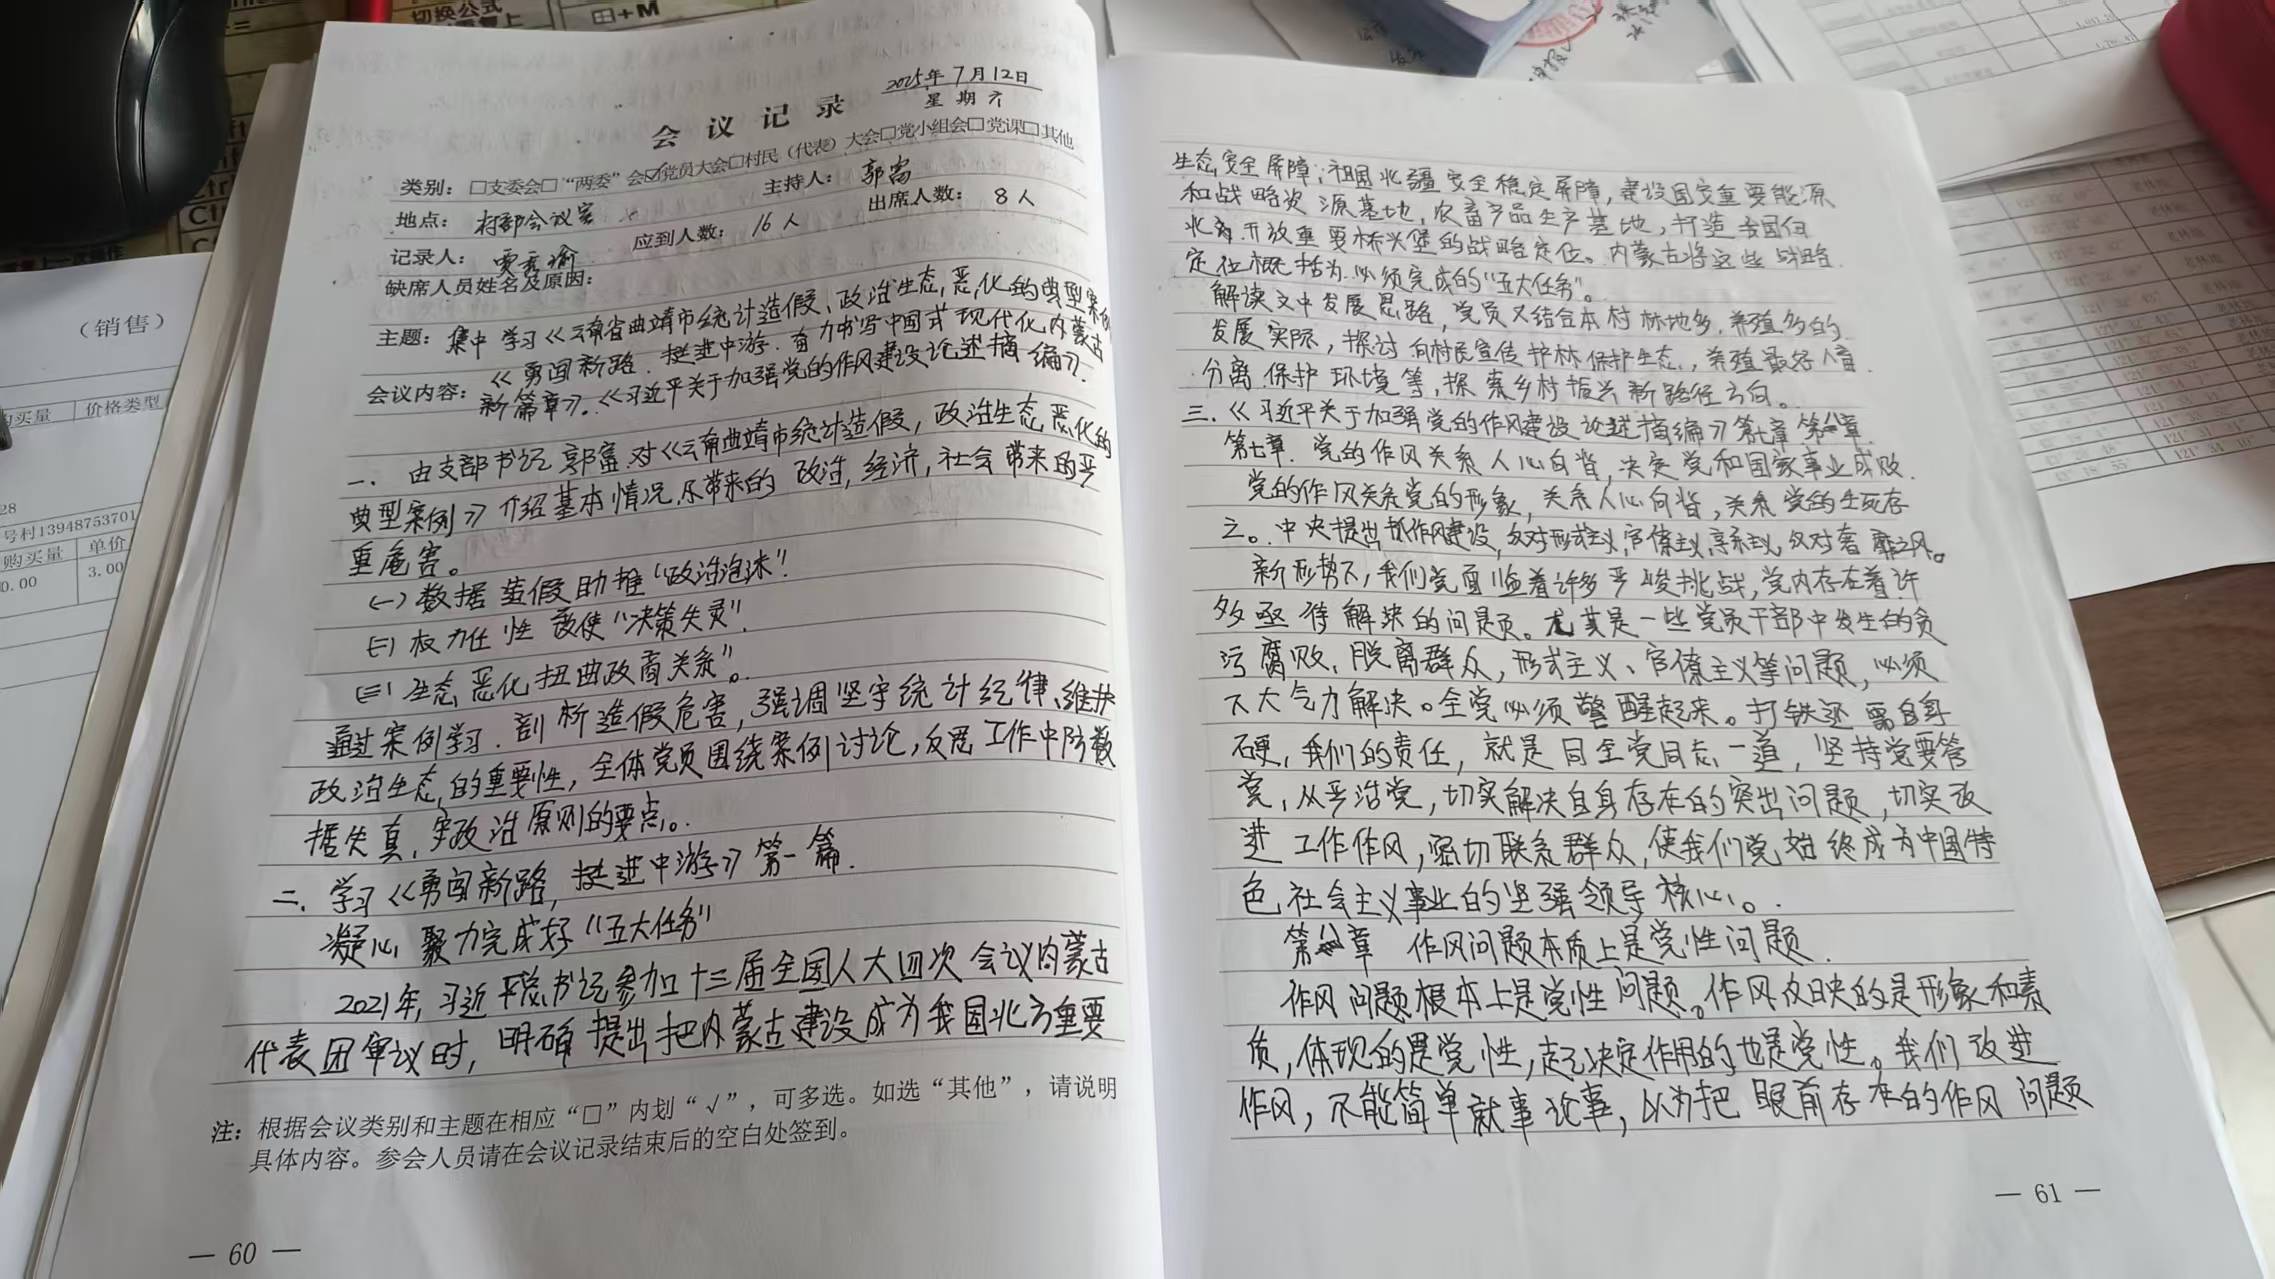 切换公式
田+M
2025年7月12日
星期六
会议记录
类别：□支委会□“两委”会☑党员大会□村民（代表）大会□党小组会□党课□其他
地点：村部会议室
主持人：郭富
记录人：
应到人数：16人
出席人数：8人
缺席人员姓名及原因：
主题：集中学习《云南省曲靖市统计造假、政治生态恶化的典型案例》
《勇闯新路、挺进中游、奋力书写中国式现代化内蒙古
会议内容：新篇章》。《习近平关于加强党的作风建设论述摘编》.
一、由支部书记郭富对《云南曲靖市统计造假，政治生态恶化的
典型案例》介绍基本情况及带来的政治，经济，社会带来的严
重危害。
(一)数据造假助推“政治泡沫”.
(二)权力任性致使“决策失灵”.
(三)生态恶化扭曲政商关系”。
通过案例学习、剖析造假危害，强调坚守统计纪律、维护
政治生态的重要性，全体党员围绕案例讨论，反思工作中防数
据失真，守政治原则的要点。
二、学习《勇闯新路，挺进中游》第一篇.
凝心聚力完成好“五大任务”
2021年，习近平总书记参加十三届全国人大四次会议内蒙古
代表团审议时，明确提出把内蒙古建设成为我国北方重要
注：根据会议类别和主题在相应“□”内划“√”，可多选。如选“其他”，请说明
具体内容。参会人员请在会议记录结束后的空白处签到。
— 60 —
生态安全屏障；祖国北疆安全稳定屏障，建设国家重要能源
和战略资源基地，农畜产品生产基地，打造我国向
北方开放重要桥头堡的战略定位。内蒙古将这些战略
定位概括为必须完成的“五大任务”。
解读文中发展思路，党员又结合本村林地多，养殖多的
发展实际，探讨向村民宣传护林保护生态，养殖最好人畜
分离保护环境等，探索乡村振兴新路径方向。
三、《习近平关于加强党的作风建设论述摘编》第七章 第八章.
第七章、党的作风关系人心向背，决定党和国家事业成败.
党的作风关系党的形象，关系人心向背，关系党的生死存
亡。中央提出抓作风建设，反对形式主义，官僚主义，享乐主义，反对奢靡之风。
新形势下，我们党面临着许多严峻挑战，党内存在着许
多亟待解决的问题。尤其是一些党员干部中发生的贪
污腐败，脱离群众，形式主义、官僚主义等问题，必须
下大气力解决。全党必须警醒起来。打铁还需自身
硬，我们的责任，就是同全党同志一道，坚持党要管
党，从严治党，切实解决自身存在的突出问题，切实改
进工作作风，密切联系群众，使我们党始终成为中国特
色社会主义事业的坚强领导核心。
第八章 作风问题本质上是党性问题.
作风问题根本上是党性问题。作风反映的是形象和素
质，体现的是党性，起决定作用的也是党性。我们改进
作风，不能简单就事论事，以为把眼前存在的作风问题
— 61 —
（销售）
购买量
价格类型
28
号村13948753701
购买量
单价
0.00
3.00